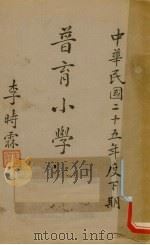 中華民國二十五年度下期
普育小學
李時霖